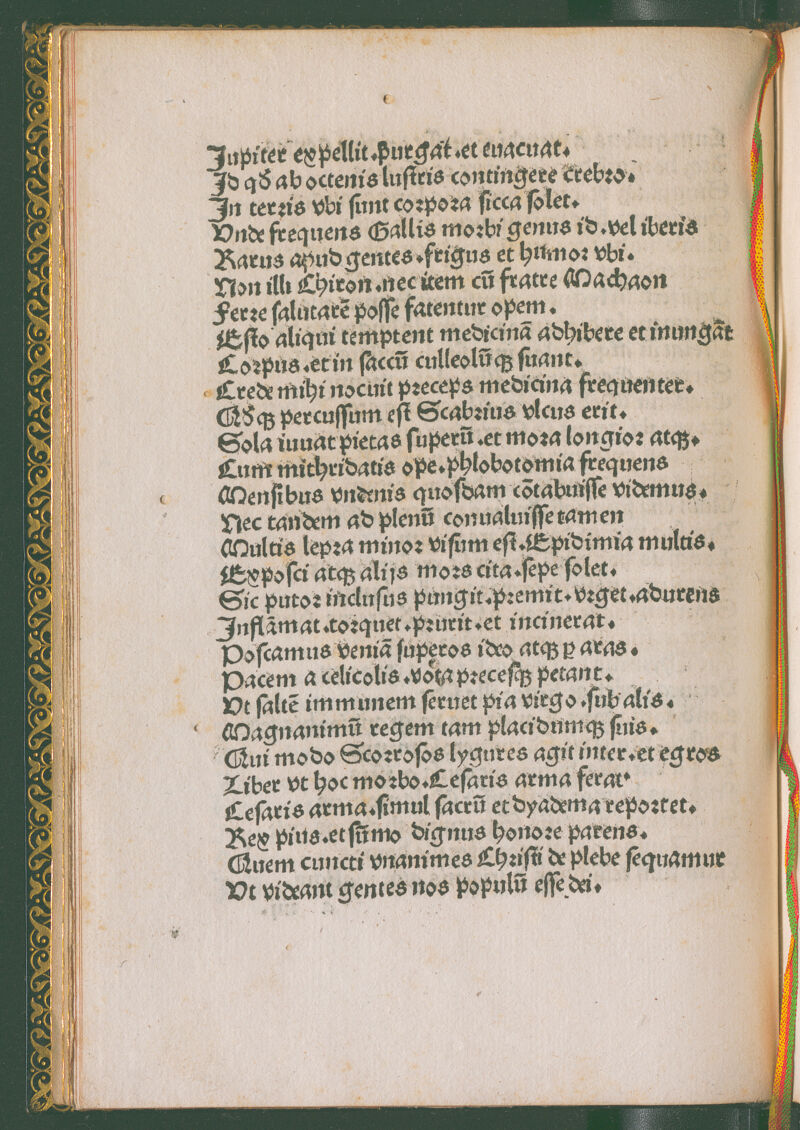 Jupiter expellit.purgat.et euacuat.
Id qď ab octenis luſtris contingere crebro.
In terris vbi ſunt corpora ſicca ſolet.
Vnde frequens Gallis morbi genus id.vel iberis
Rarus apud gentes.frigus et humor vbi.
Non illi Chiron.nec item cū fratre Machaon
Ferre ſalutarē poſſe fatentur opem.
Eſto aliqui temptent medicinā adhibere et inungāt
Corpus.et in ſaccū culleolūqꝫ ſuant.
Crede mihi nocuit preceps medicina frequenter.
Aďqꝫ percuſſum eſt Scabrius vlcus erit.
Sola iuuat pietas ſuperū.et mora longior atqꝫ.
Cum mithridatis ope.phlobotomia frequens
Menſibus vndenis quoſdam cōtabuiſſe videmus.
Nec tandem ad plenū conualuiſſe tamen
Multis lepra minor viſum eſt.Epidimia multis.
Expoſci atqꝫ alijs mors cita.ſepe ſolet.
Sic putor incluſus pungit.premit.vrget.adurens
Inflāmat.torquet.prurit.et incinerat.
Poſcamus veniā ſuperos ideo atqꝫ ꝑ aras.
Pacem a celicolis.vota preceſqꝫ petant.
Vt ſaltē immunem ſeruet pia virgo.ſub alis.
Magnanimū regem tam placidumqꝫ ſuis.
Qui modo Scorroſos lygures agit inter.et egros
Liber vt hoc morbo.Ceſaris arma ferat
Ceſaris arma.ſimul ſacrū et dyadema reportet.
Rex pius.et ſūmo dignus honore parens.
Quem cuncti vnanimes Chriſti de plebe ſequamur
Vt videant gentes nos populū eſſe dei.